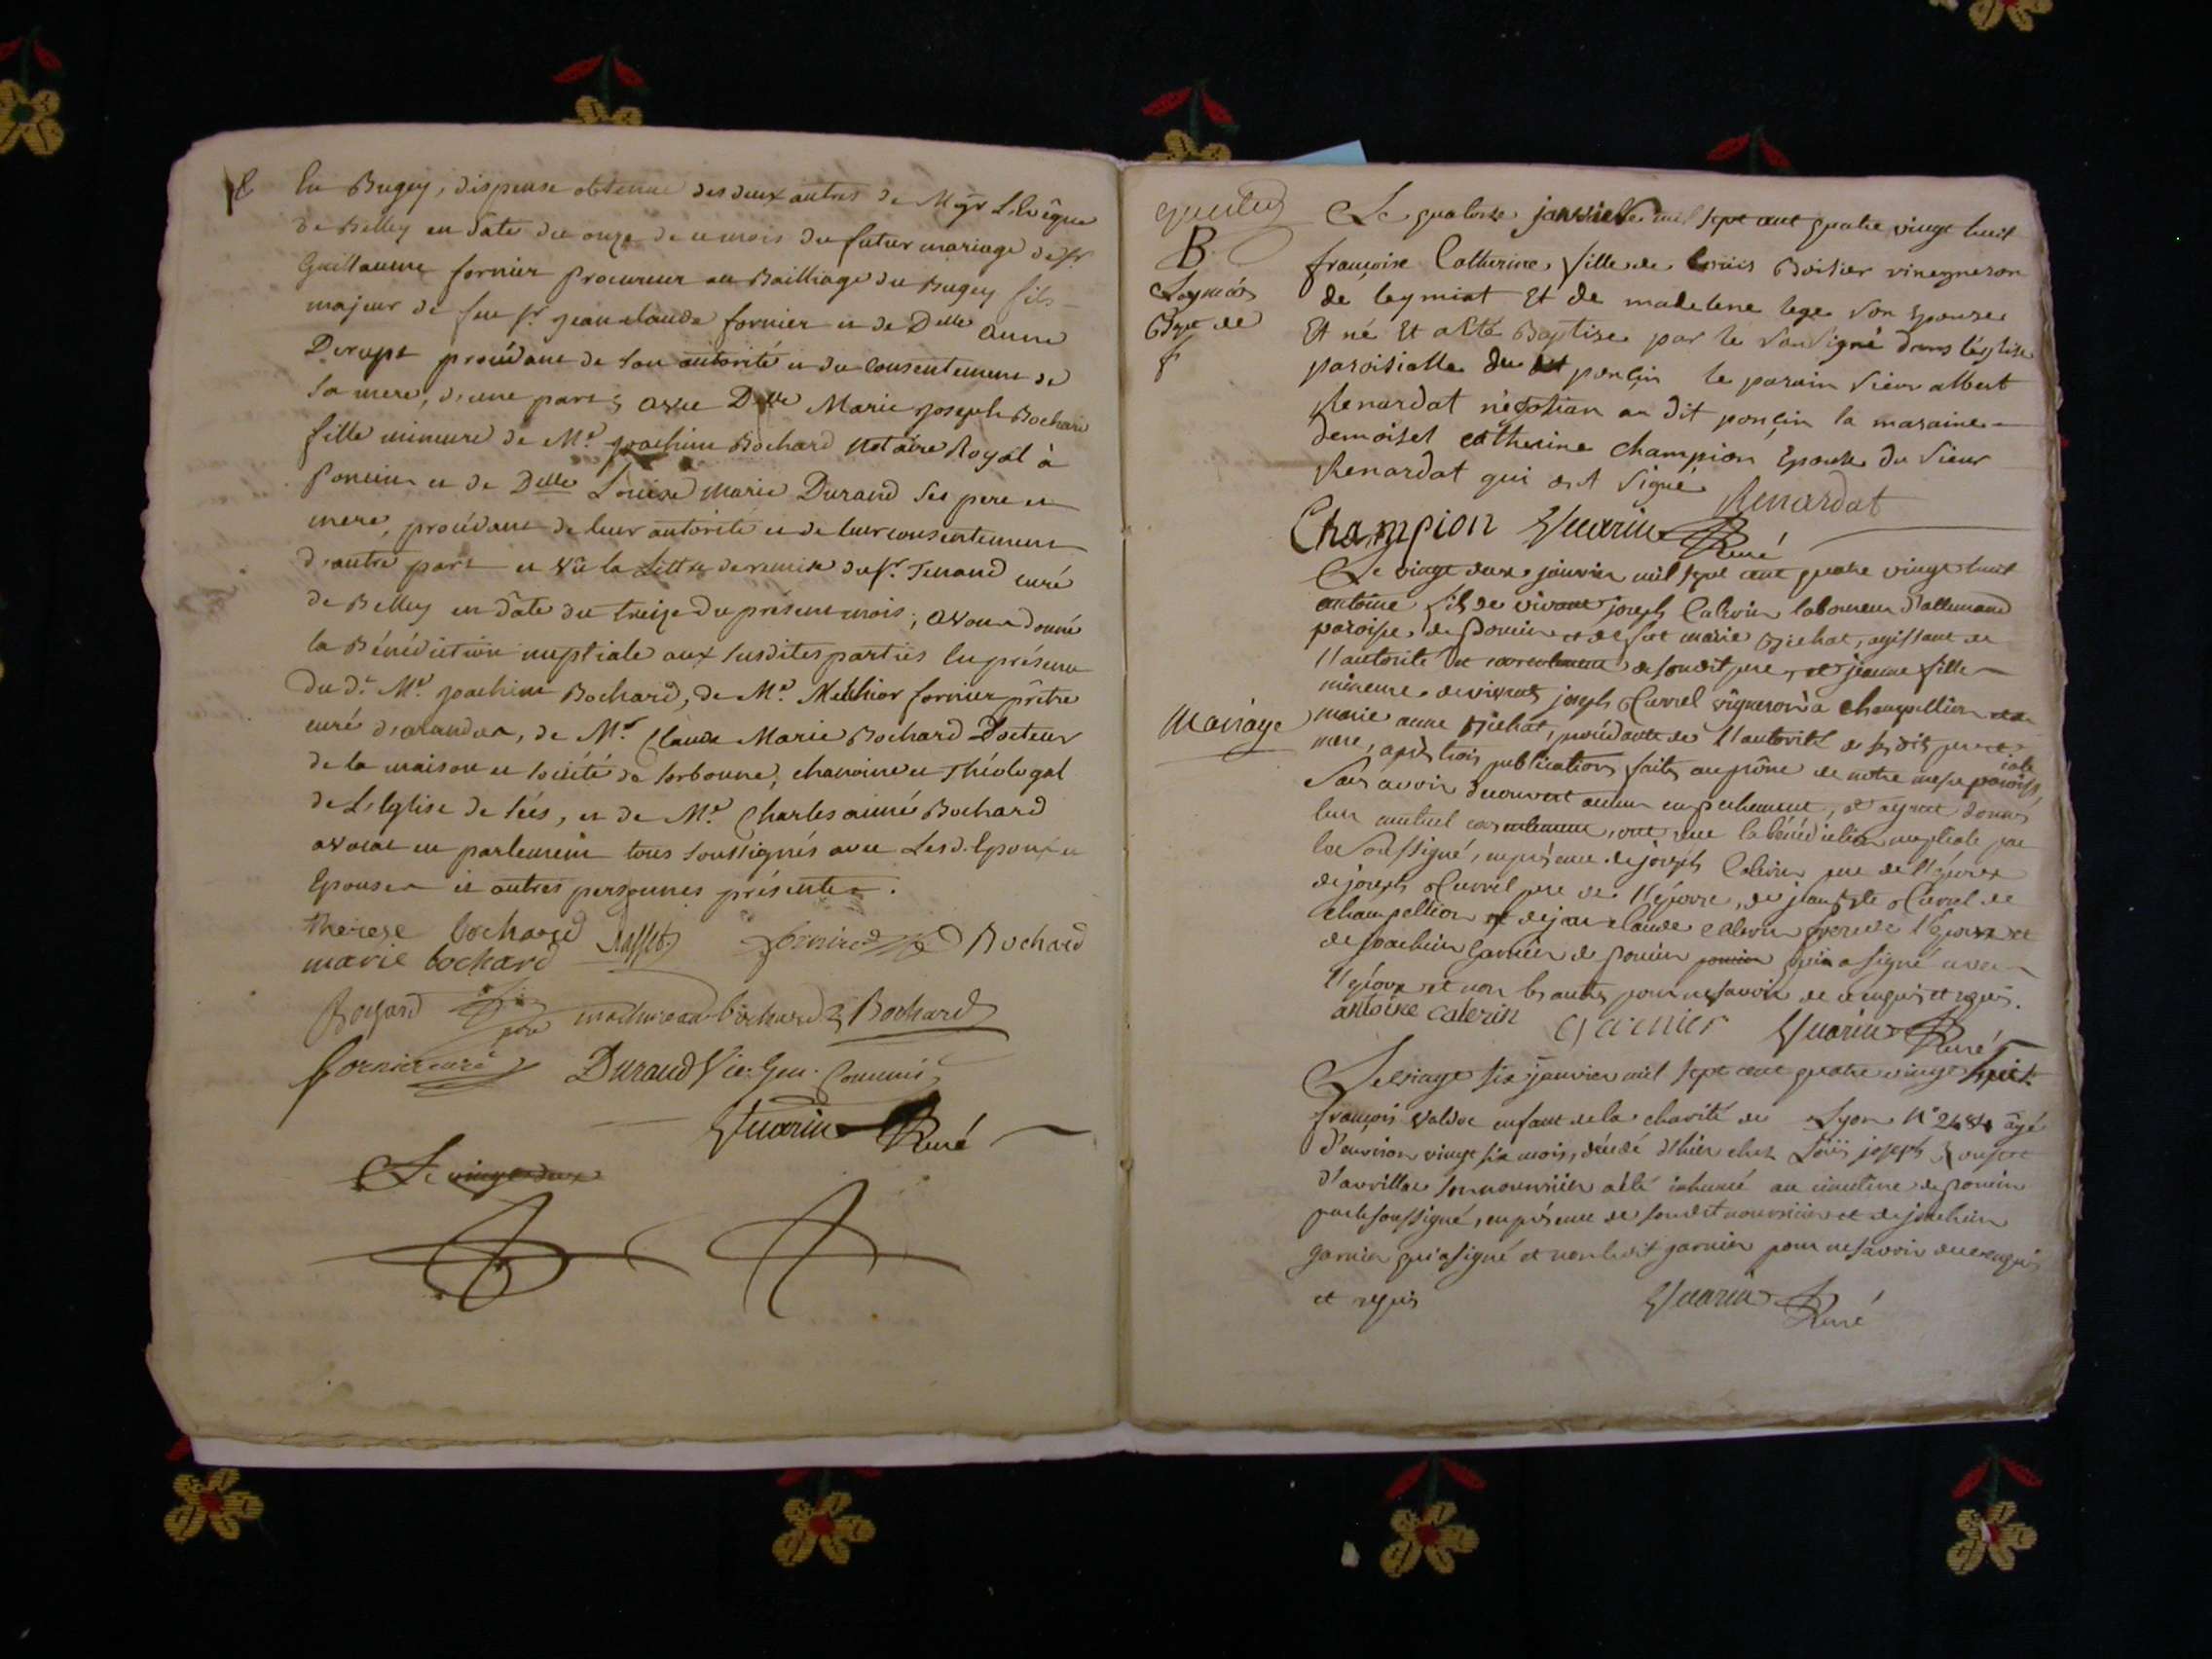 En Bugey, dispense obtenue des deux autres de Mgr L'Evêque
de Belley en date du onze de ce mois du futur mariage de Sr
Guillaume fornier procureur au Bailliage du Bugey fils
majeur de feu Sr jean claude fornier et de Delle anne
procédant de son autorité et du Consentement de
sa mere, d'une part; avec Delle Marie joseph Bochard
fille mineure de Me joachim Bochard Notaire Royal à
Poncin et de Delle Louise Marie Durand ses pere et
mere, procédant de leur autorité et de leur consentement
d'autre part et vû la Lettre de remise du Sr. Tenand curé
de Belley en date du treize du présent mois; avons donné
la Bénédiction nuptiale aux susdites parties En présence
du dt Me joachim Bochard, de Me Melchior fornier prêtre
curé d'arandas, de Mr Claude Marie Bochard Docteur
de la maison et société de sorbonne, chanoine et Théologal
de L'Eglise de Sées, et de Me Charles aimé Bochard
avocat en parlement tous soussignés avec Lesd. Epoux et
Epouse et autres personnes présentes.
therese bochard fornier Bochard
marie bochard
bochard Bochard
fornier curé Durand Vic. Gen. Commis
Guarin Curé
Le vingt deux
B.
Leymiat
Bapt de
f
Le quatorze janvier mil sept cent quatre vingt huit
françoise Catherine fille de Louis Boisier vineyneron
de leymiat Et de madelene lege son Epouse
Et né Et a Eté Baptise par le Soussigné dans l'église
paroisialle du dit ponçin le parain Sieur albert
Renardat négotian au dit ponçin la maraine
demoisel catherine champion Epouse du Sieur
Renardat qui ont Signé Renardat
Champion Guarin Curé
Mariage
Le vingt deux janvier mil sept cent quatre vingt huit
antoine fils de vivant joseph Caterin laboureur d'allemand
paroisse de Poncin et de fue marie Michat, agissant de
l'autorité et consentement de son dit pere, et jeanne fille
mineure de vivants joseph Curvel vigneron à champellion et de
marie anne Michat, procédante de l'autorité de ses dits pere et
mere, après trois publications faites au prône de notre messe paroissiale
sans avoir decouvert aucun empechement, et ayant donné
leur mutuel consentement, ont reçu la bénédiction nuptiale par
le soussigné, en présence de joseph Caterin pere de l'époux
de joseph Curvel pere de l'épouse, de jean Bte Curvel de
champellion et de jean claude Caterin frere de l'époux et
de joachim Garnier de Poncin qui a signé avec
l'époux et non les autres pour ne savoir de ce enquis et requis.
antoine caterin Garnier Guarin Curé
Le vingt six janvier mil sept cent quatre vingt huit
françois enfant de la charité de Lyon N° âgé
d'environ vingt six mois, décédé d'hier chez Loüis joseph
d'avrillat son nourricier a été inhumé au cimetiere de Poncin
par le soussigné, en présence de son dit nourricier et de joachim
garnier qui a signé et non le dit garnier pour ne savoir de ce enquis
et requis Guarin Curé